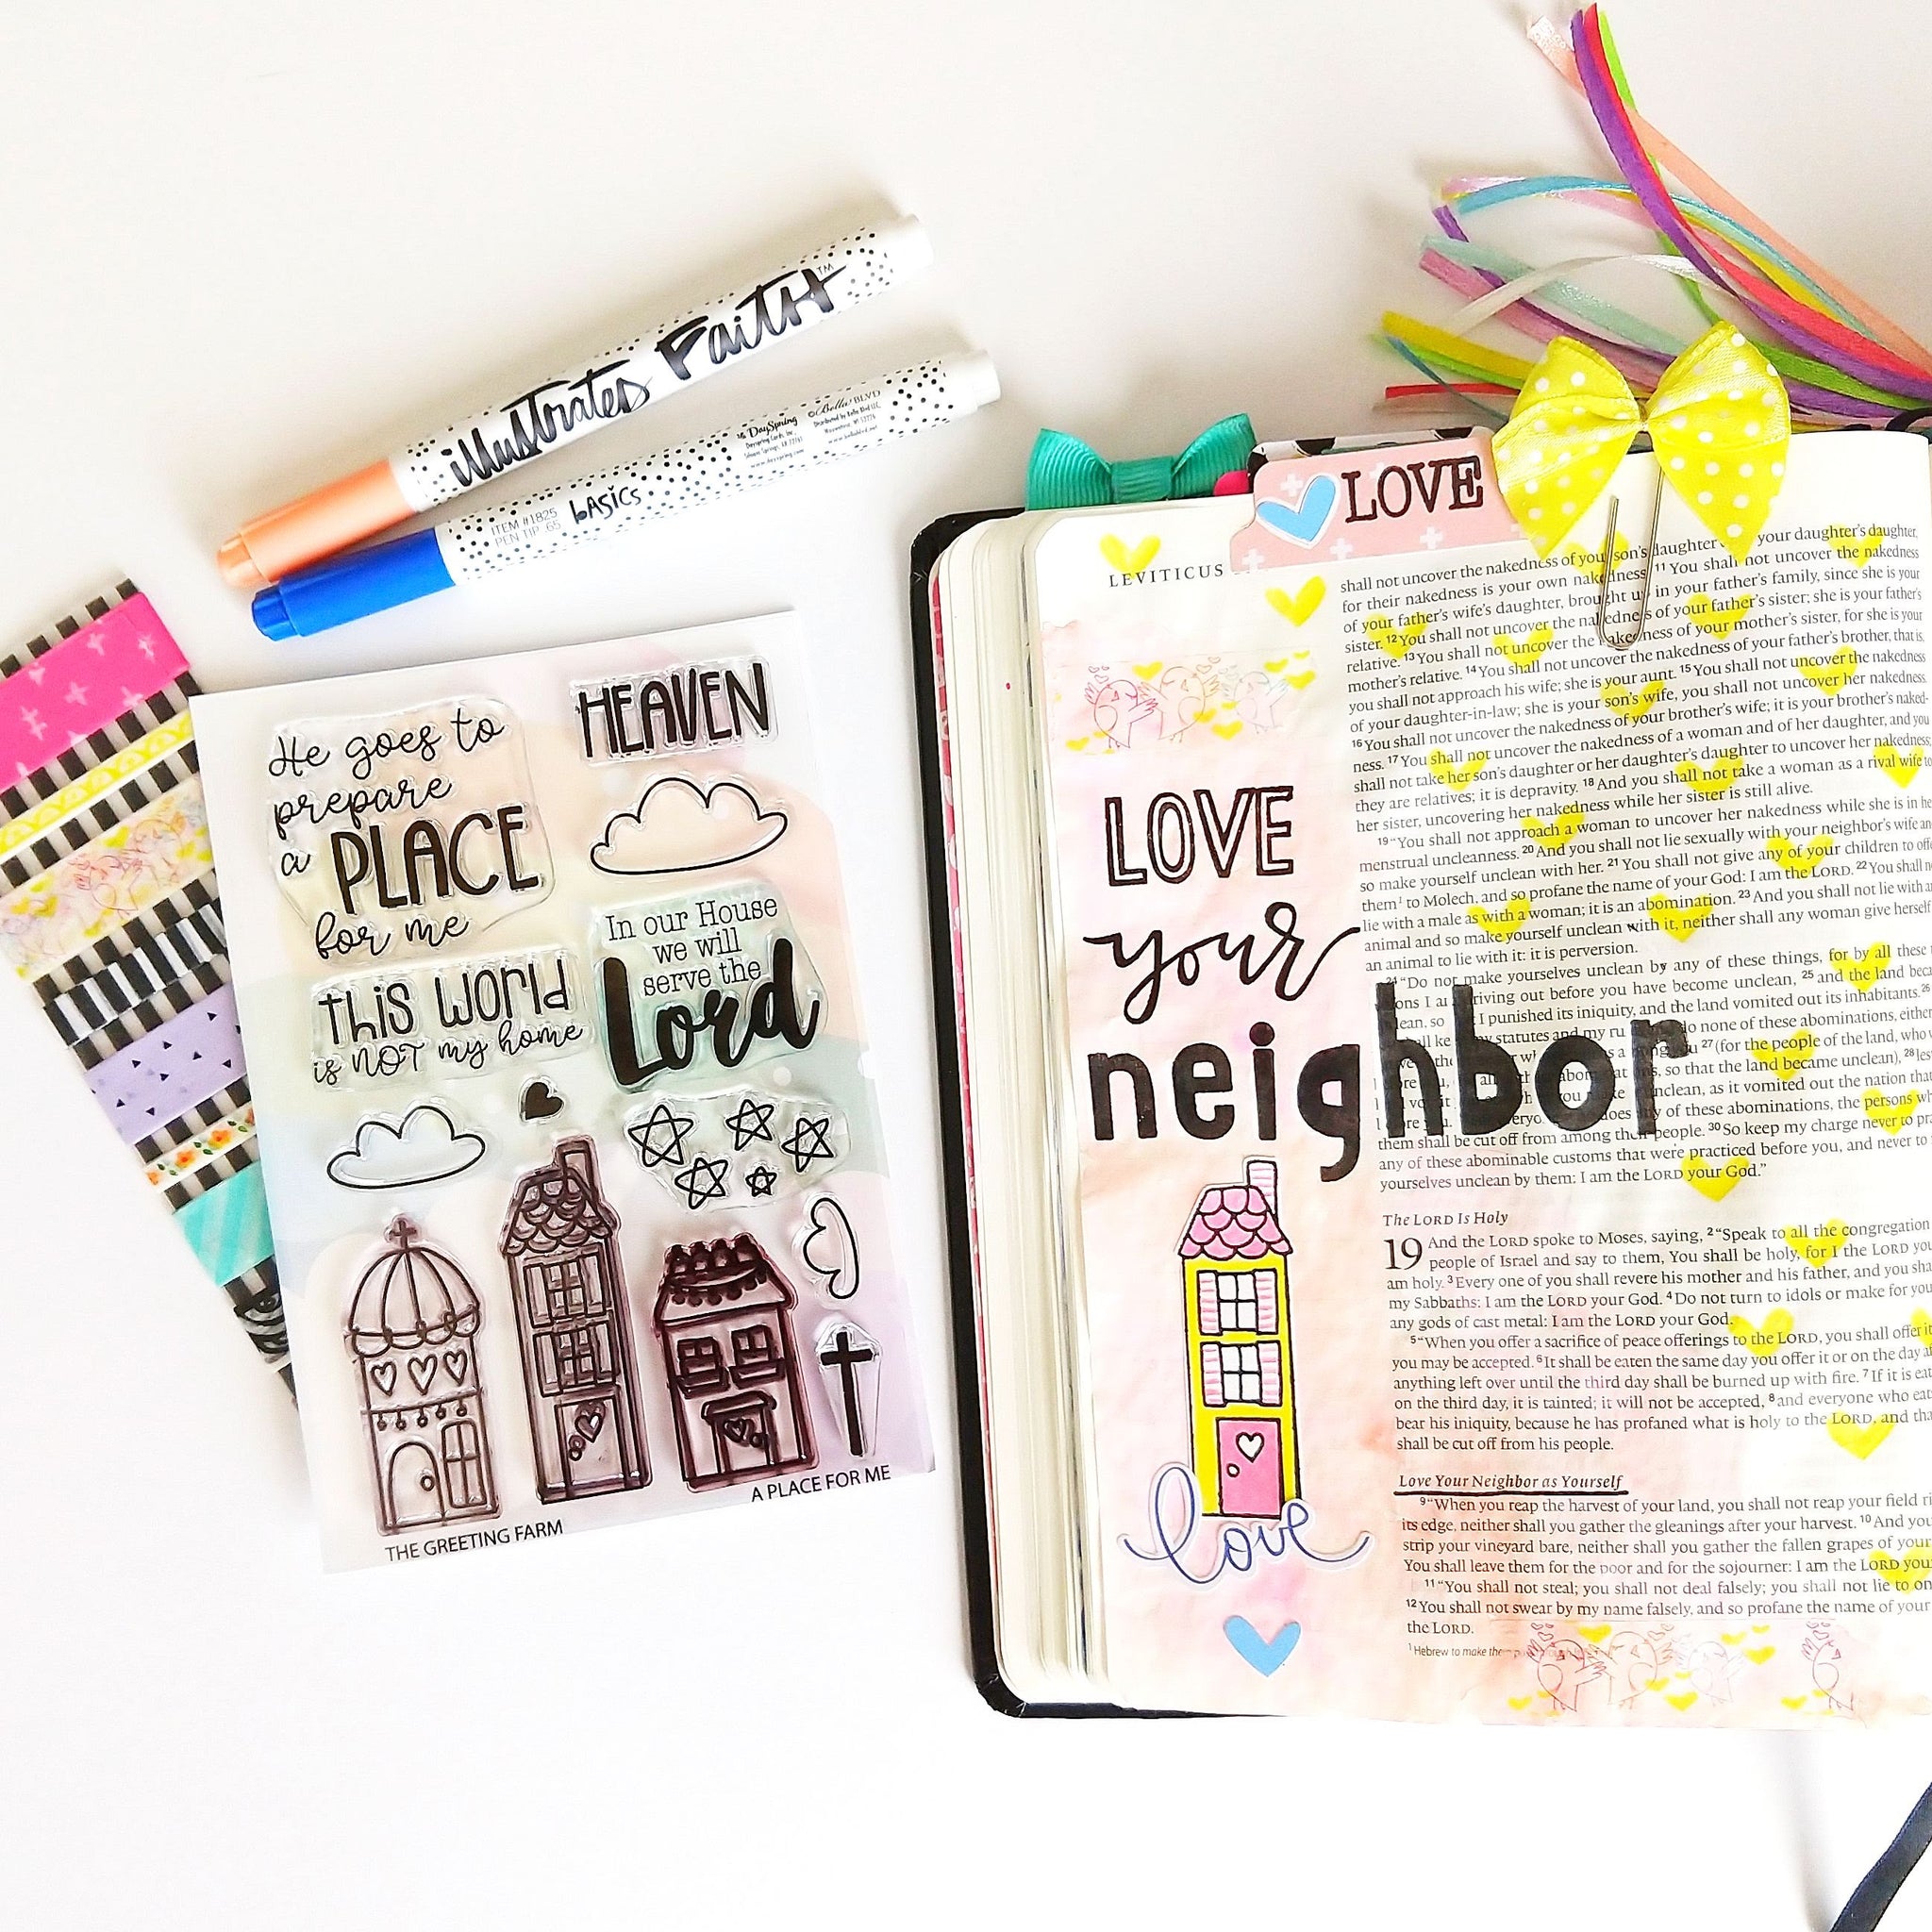 illustrated Faith™
ITEM #1825
PEN TIP .65
basics
DaySpring
Bella BLVD
He goes to
prepare
a PLACE
for me
HEAVEN
In our House
we will
serve the
Lord
this world
is NOT my home
A PLACE FOR ME
THE GREETING FARM
LOVE
LEVITICUS
LOVE
your
neighbor
love
shall not uncover the nakedness of your son's daughter your daughter's daughter,
for their nakedness is your own nakedness. 11 You shall not uncover the nakedness
of your father's wife's daughter, brought up in your father's family, since she is your
sister. 12 You shall not uncover the nakedness of your father's sister; she is your father's
relative. 13 You shall not uncover the nakedness of your mother's sister, for she is your
mother's relative. 14 You shall not uncover the nakedness of your father's brother, that is,
you shall not approach his wife; she is your aunt. 15 You shall not uncover the nakedness
of your daughter-in-law; she is your son's wife, you shall not uncover her nakedness.
16 You shall not uncover the nakedness of your brother's wife; it is your brother's naked-
ness. 17 You shall not uncover the nakedness of a woman and of her daughter, and you
shall not take her son's daughter or her daughter's daughter to uncover her nakedness;
they are relatives; it is depravity. 18 And you shall not take a woman as a rival wife to
her sister, uncovering her nakedness while her sister is still alive.
19 "You shall not approach a woman to uncover her nakedness while she is in
menstrual uncleanness. 20 And you shall not lie sexually with your neighbor's wife and
so make yourself unclean with her. 21 You shall not give any of your children to
them1 to Molech, and so profane the name of your God: I am the LORD. 22 You shall
lie with a male as with a woman; it is an abomination. 23 And you shall not lie with
animal and so make yourself unclean with it, neither shall any woman give herself
an animal to lie with it: it is perversion.
24 "Do not make yourselves unclean by any of these things, for by all these
driving out before you have become unclean, 25 and the land
I punished its iniquity, and the land vomited out its inhabitants. 26
statutes and my do none of these abominations, either
27 (for the people of the land, who
so that the land became unclean), 28
unclean, as it vomited out the nation that
does any of these abominations, the persons
them shall be cut off from among their people. 30 So keep my charge never to
any of these abominable customs that were practiced before you, and never to
yourselves unclean by them: I am the LORD your God."
The LORD Is Holy
19 And the LORD spoke to Moses, saying, 2 "Speak to all the congregation
people of Israel and say to them, You shall be holy, for I the LORD
am holy. 3 Every one of you shall revere his mother and his father, and you
my Sabbaths: I am the LORD your God. 4 Do not turn to idols or make for
any gods of cast metal: I am the LORD your God.
5 "When you offer a sacrifice of peace offerings to the LORD, you shall offer it
you may be accepted. 6 It shall be eaten the same day you offer it or on the day
anything left over until the third day shall be burned up with fire. 7 If it is
on the third day, it is tainted; it will not be accepted, 8 and everyone who
bear his iniquity, because he has profaned what is holy to the LORD, and
shall be cut off from his people.
Love Your Neighbor as Yourself
9 "When you reap the harvest of your land, you shall not reap your field
its edge, neither shall you gather the gleanings after your harvest. 10 And
strip your vineyard bare, neither shall you gather the fallen grapes of your
You shall leave them for the poor and for the sojourner: I am the LORD
11 "You shall not steal; you shall not deal falsely; you shall not lie to
12 You shall not swear by my name falsely, and so profane the name of your
the LORD.
1 Hebrew to make